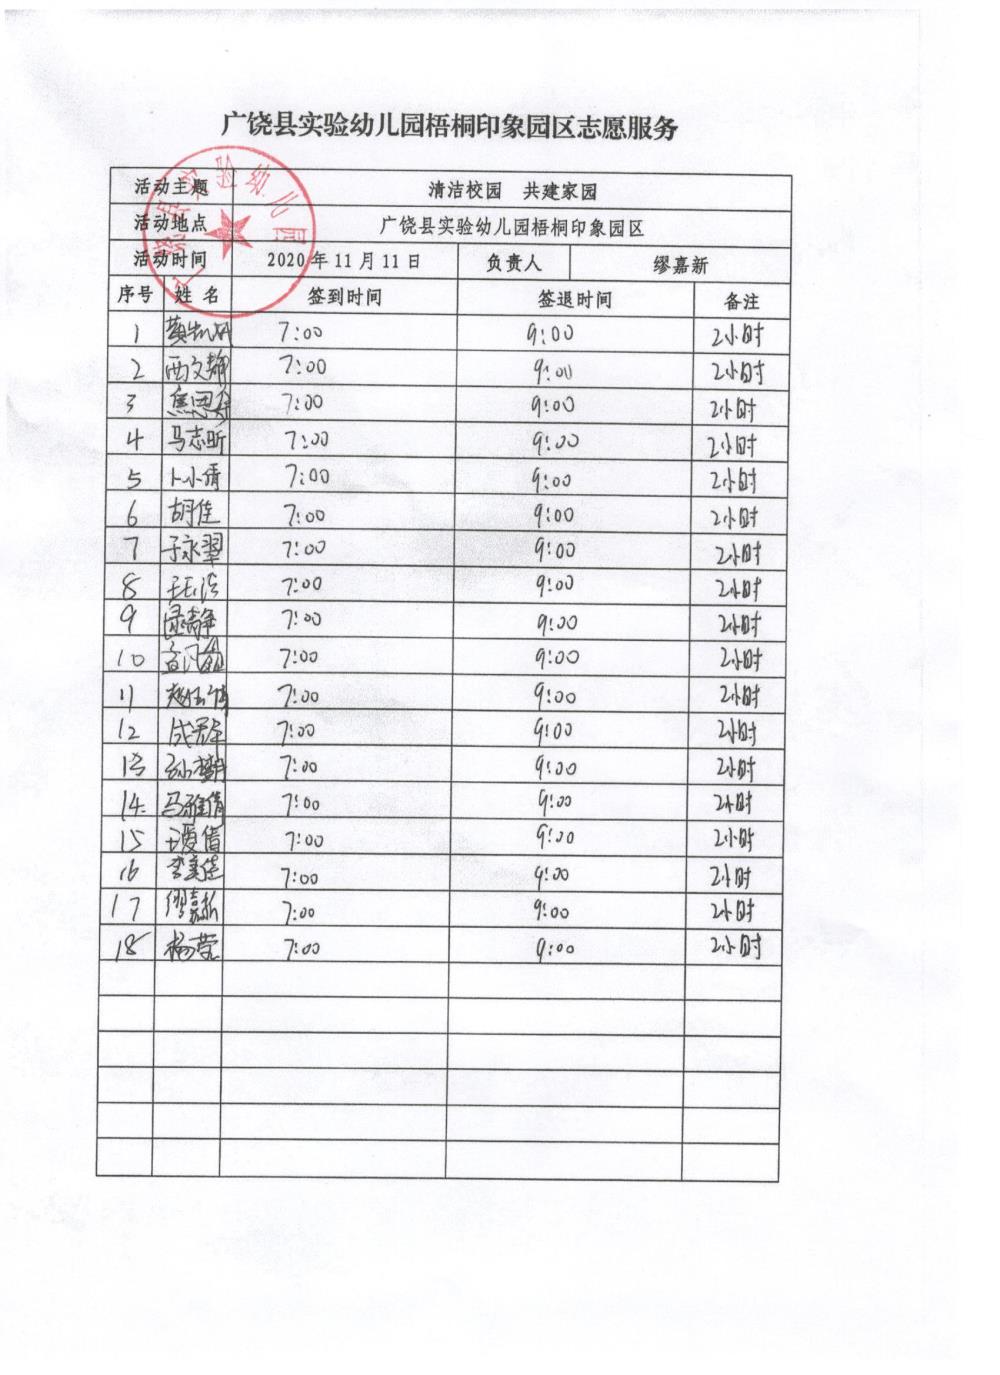 广饶县实验幼儿园梧桐印象园区志愿服务
活动主题 清洁校园 共建家园
活动地点 广饶县实验幼儿园梧桐印象园区
活动时间 2020年11月11日 负责人 缪嘉新
序号 姓名 签到时间 签退时间 备注
1 7:00 9:00 2小时
2 西文静 7:00 9:00 2小时
3 焦思 7:00 9:00 2小时
4 马志昕 7:00 9:00 2小时
5 卜小倩 7:00 9:00 2小时
6 胡佳 7:00 9:00 2小时
7 于永翠 7:00 9:00 2小时
8 7:00 9:00 2小时
9 静 7:00 9:00 2小时
10 孟 7:00 9:00 2小时
11 赵 7:00 9:00 2小时
12 成 7:00 9:00 2小时
13 孙 7:00 9:00 2小时
14 马雅倩 7:00 9:00 2小时
15 王爱倩 7:00 9:00 2小时
16 李美佳 7:00 9:00 2小时
17 缪嘉新 7:00 9:00 2小时
18 杨莹 7:00 9:00 2小时